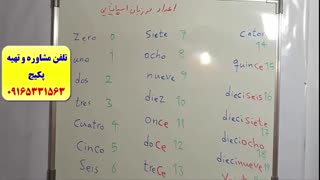 اعداد در زبان اسپانیایی
تلفن مشاوره و تهیه
پکیج
۰۹۱۶۵۳۳۱۵۶۳
Zero 0
uno 1
dos 2
tres 3
Cuatro 4
Cinco 5
Seis 6
Siete 7
ocho 8
nueve 9
diez 10
once 11
doce 12
trece 13
14
quince 15
dieciseis 16
diecisiete 17
dieciocho 18
diecinueve 19